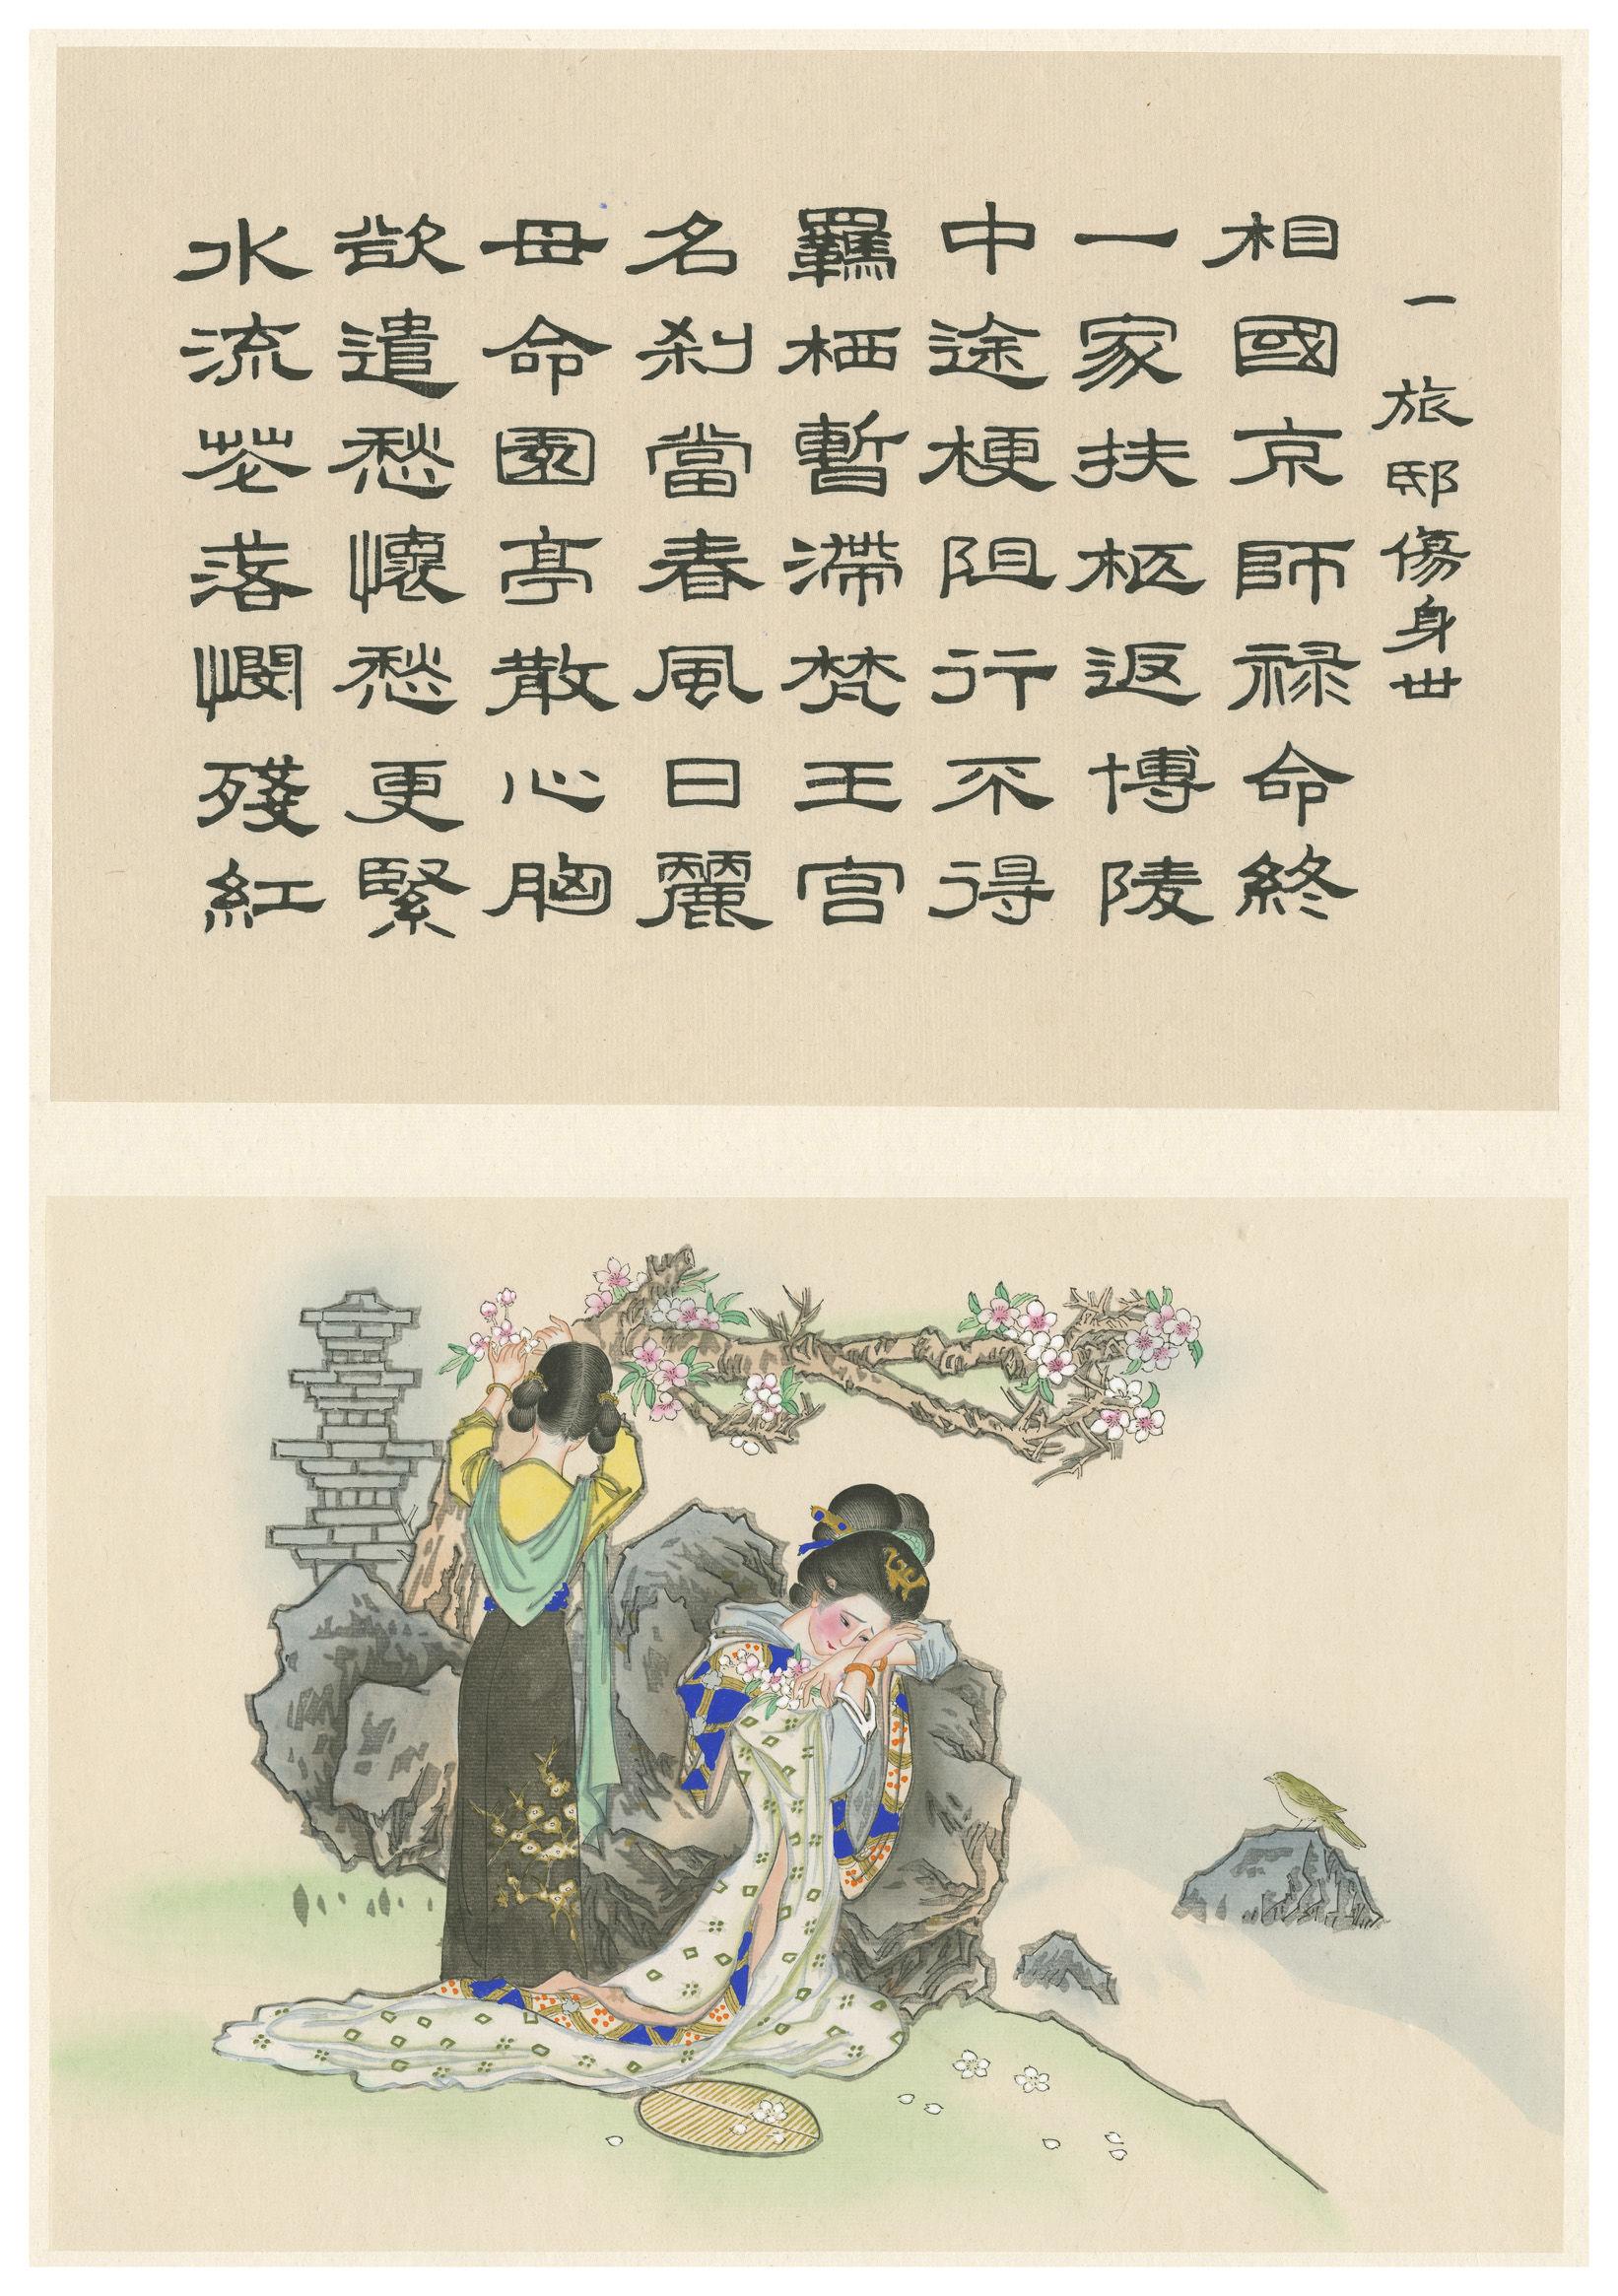 一 旅邸傷身世
相國京師禄命終
一家扶柩返博陵
中途梗阻行不得
羈栖暫滯梵王宮
名刹當春風日麗
母命園亭散心胸
欲遣愁懷愁更緊
水流花落憫殘紅